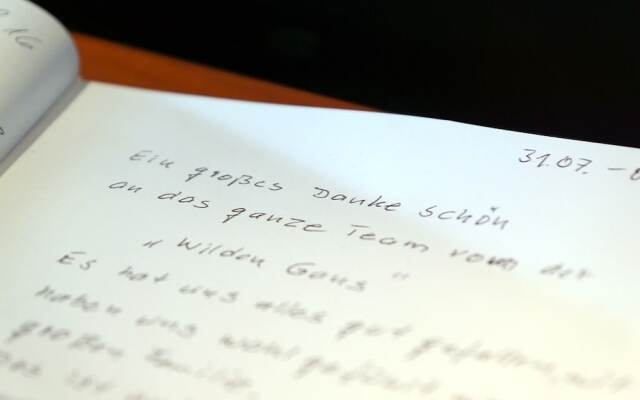 31.07. -
Ein großes Danke schön
an das ganze Team vom der
"Wilden Gans"
Es hat uns alles gut gefallen, wir
haben uns wohl gefühlt
großen Familie.